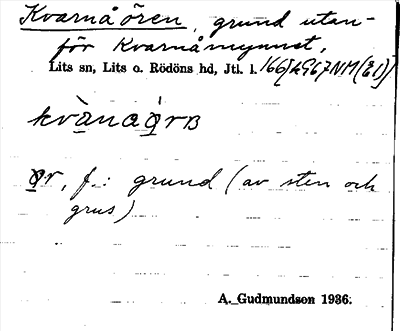 Kvarnåören, grund utan-
för Kvarnåmynnet.
Lits sn, Lits o. Rödöns hd, Jtl. l.
kvànaọ̀rʙ
ør, f.: grund (av sten och
grus)
A. Gudmundson 1936.